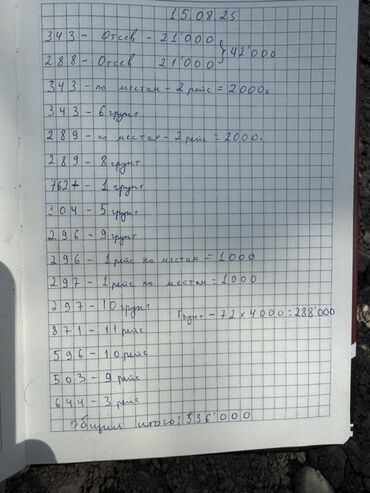 15.08.25
343 - Отсев - 21'000
288 - Отсев 21'000 } 42'000
343 - по местам - 2 рейс = 2000с
343 - 6 грунт
289 - по местах - 2 рейс = 2000с
289 - 8 грунт
762+ - 1 грунт
304 - 5 грунт
296 - 9 грунт
296 - 1 рейс по местам = 1000
297 - 1 рейс по местам = 1000
297 - 10 грунт
Грун - 72 x 4000 = 288'000
871 - 11 рейс
596 - 10 рейс
503 - 9 рейс
644 - 3 рейс
Общий итого: 336'000